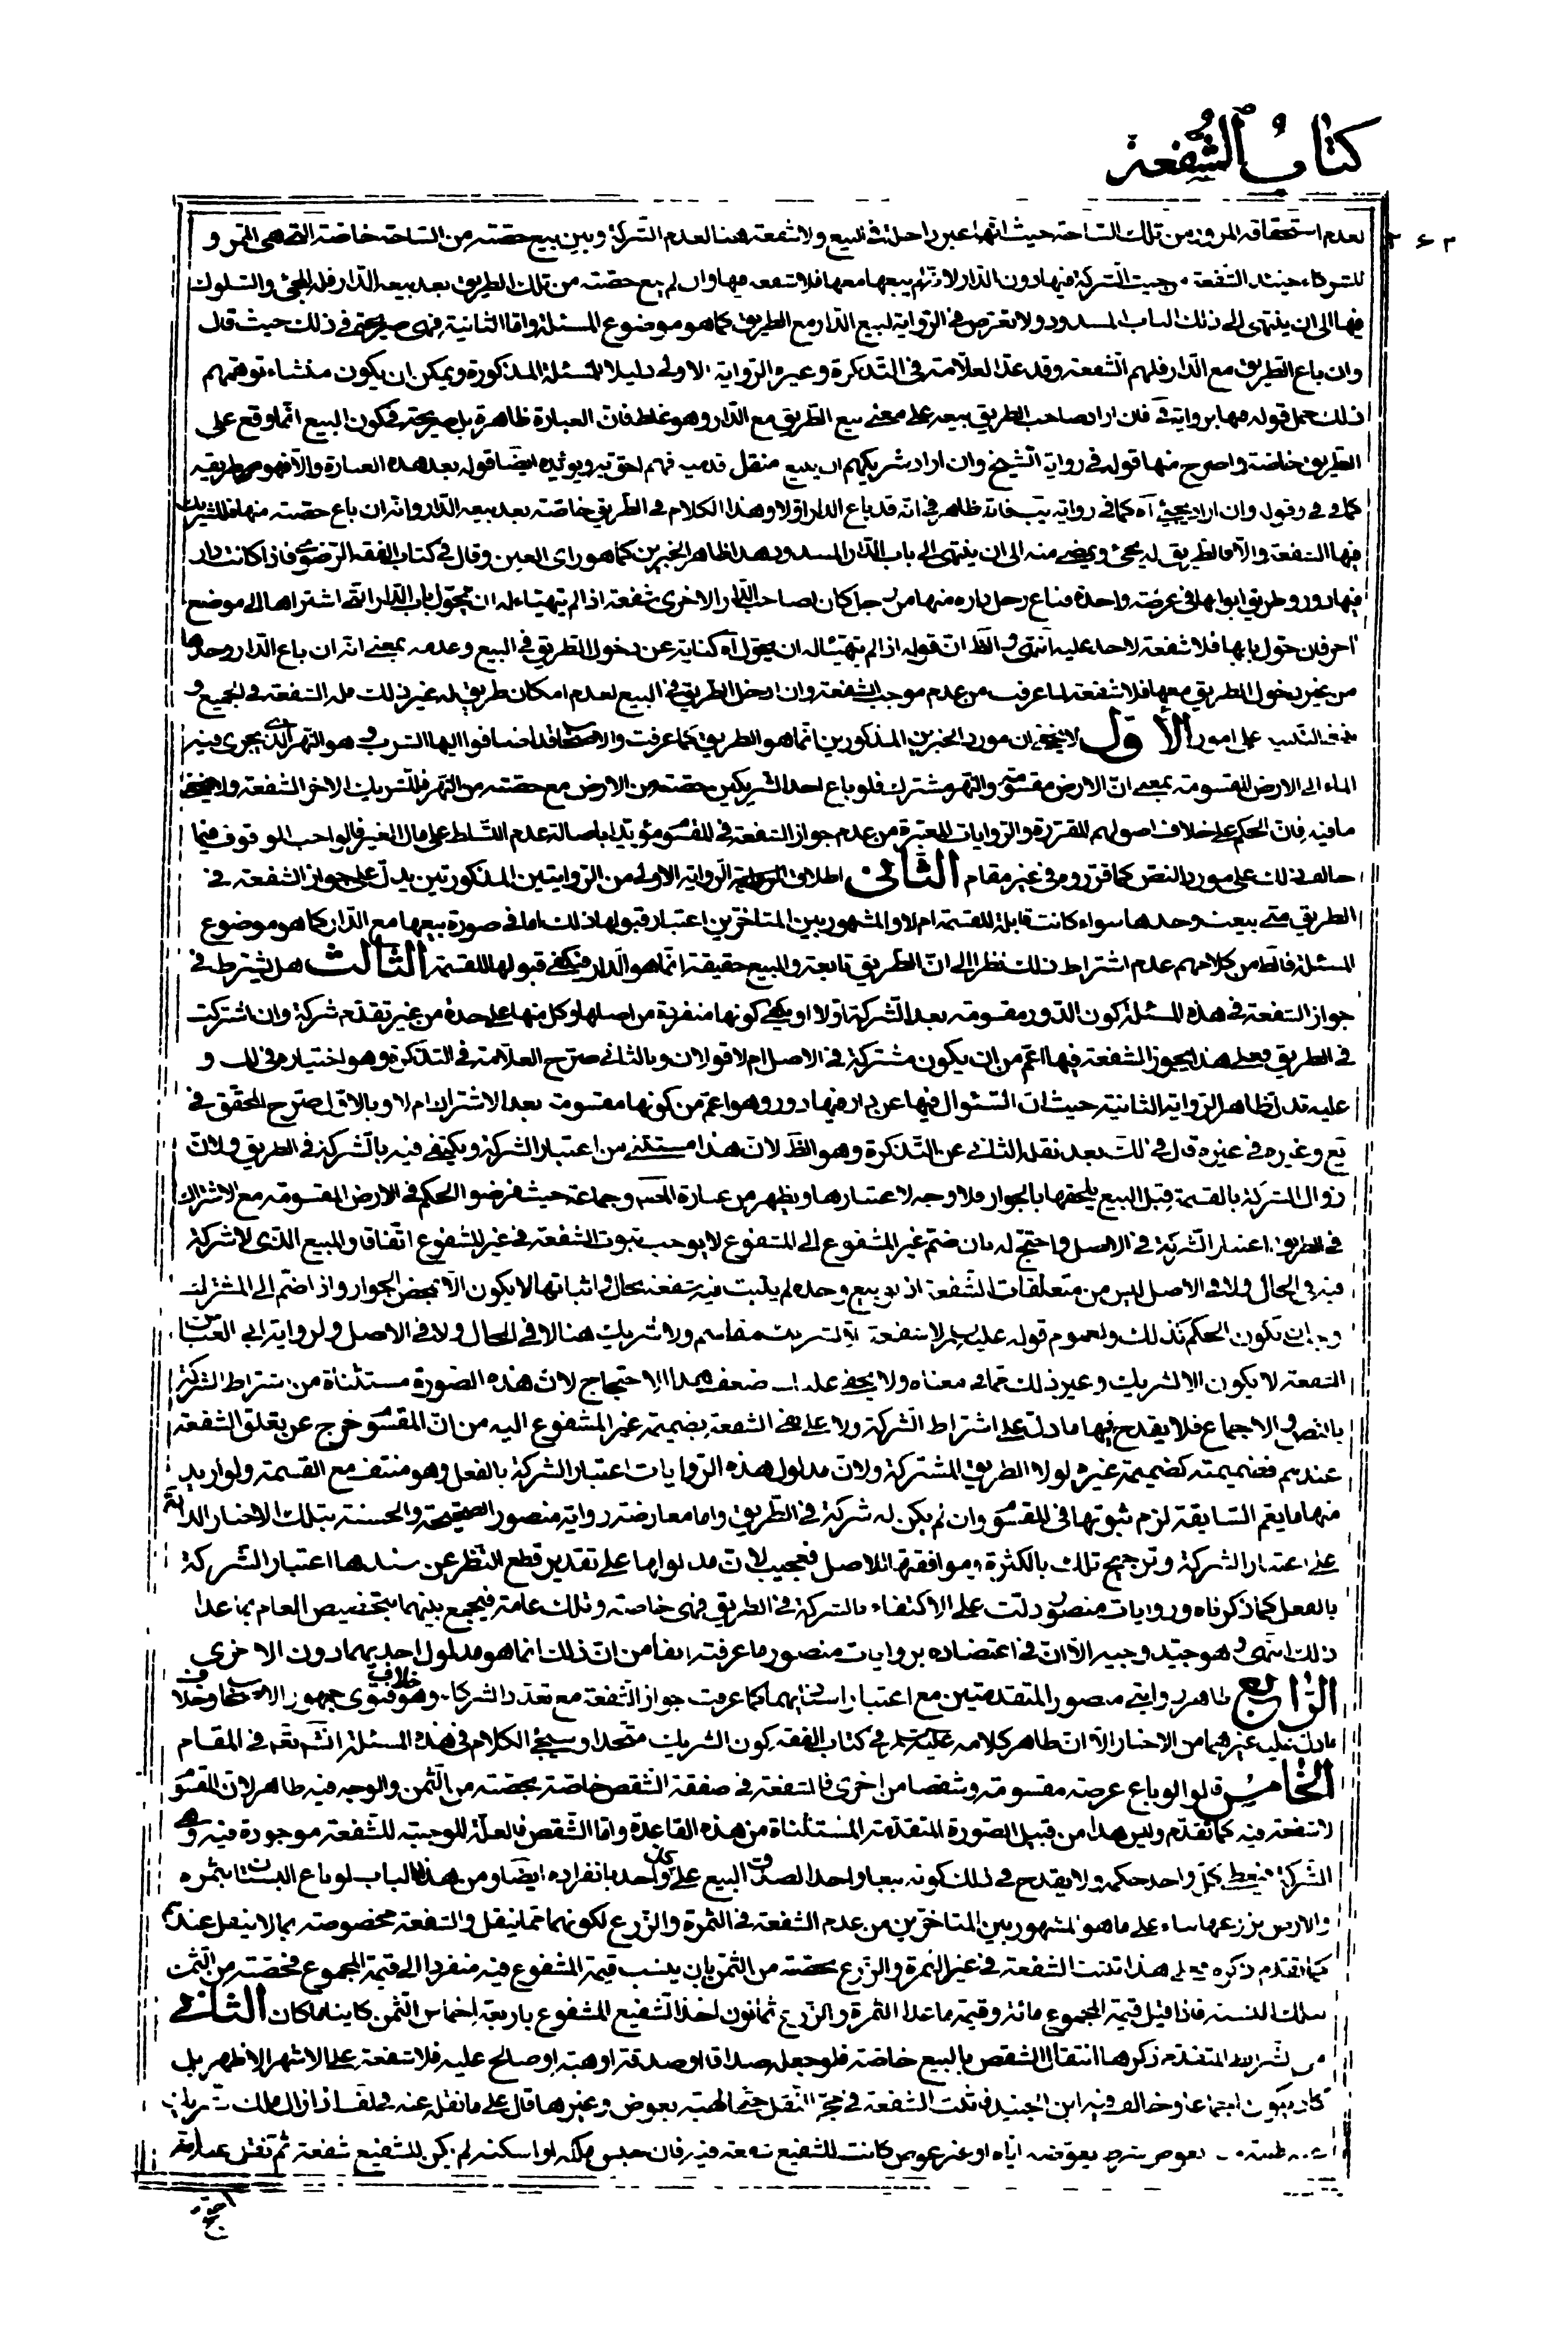 كتاب الشفعة
۲۶۲
لعدم استحقاقه المرور من تلك الساحة حيث انها غير داخلة في البيع ولا شفعة هنا لعدم الشركة وبين بيع حصته من الساحة خاصة التي هي الممر و
للشركاء حينئذ الشفعة من حيث الشركة فيها دون الدار لا بيعها معها فلا شفعة فيها وان لم يبع حصته من تلك الطريق بعد بيعه الدار فله المجئ والسلوك
فيها الى ان ينتهى الى ذلك الباب المسدود ولا تعرض في الرواية لبيع الدار مع الطريق كما هو موضوع المسئلة واما الثانية فهى صريحة في ذلك حيث قال
وان باع الطريق مع الدار فلهم الشفعة وقد عد العلامة في التذكرة وغيره الرواية الاولى دليلا للمسئلة المذكورة ويمكن ان يكون منشاء توهمهم
ذلك حمل قوله فيها برواية في فان اراد صاحب الطريق بيعه على معنى بيع الطريق مع الدار وهو غلط فان العبارة ظاهرة بل صريحة في كون البيع انما وقع على
الطريق خاصة واصرح منها قوله في رواية الشيخ وان اراد شريكهم ان يبيع منقل قدميه فهم احق به ويؤيده ايضا قوله بعد هذه العبارة والا فهو طريقه
كما في في وقوله وان اراد يجئ آه كما في رواية يب فانه ظاهر في انه قد باع الدار اولا وهذا الكلام في الطريق خاصة بعد بيعه الدار وانه ان باع حصته منها فللشريك
فيها الشفعة والا فالطريق له يجئ ويمضى منه الى ان ينتهى الى باب الدار المسدود هذا ظاهر الخبرين كما هو راى العين وقال في كتاب الفقه الرضوى فاذا كانت دار
فيها دور وطريق ابوابها في عرصة واحدة فباع رجل داره منها من رجل كان لصاحب الدار الاخرى شفعة اذا لم يتهيأ له ان يحول باب الدار التي اشتراها الى موضع
اخر فان حول بابها فلا شفعة لاحد عليه انتهى والظ ان قوله اذا لم يتهيأ له ان يحول آه كناية عن دخول الطريق في البيع وعدمه بمعنى انه ان باع الدار وحدها
من غير دخول الطريق معها فلا شفعة لما عرفت من عدم موجب الشفعة وان ادخل الطريق في البيع لعدم امكان طريق له غير ذلك فله الشفعة في الجميع و
على امور الأول لا يخفى ان مورد الخبرين المذكورين انما هو الطريق كما عرفت والاصحاب قد اضافوا اليها الشرب وهو النهر الذي يجرى فيه
الماء الى الارض المقسومة بمعنى ان الارض مقسومة والنهر مشترك فلو باع احد الشريكين حصته من الارض مع حصته من النهر فللشريك الاخر الشفعة ولا يخفى
ما فيه فان الحكم على خلاف اصولهم المقررة والروايات المعتبرة من عدم جواز الشفعة في المقسوم مؤيدا باصالة عدم التسلط على مال الغير فالواجب الوقوف فيما
خالف ذلك على مورد النص كما قرروه في غير مقام الثانى اطلاق الرواية الاولى من الروايتين المذكورتين يدل على جواز الشفعة في
الطريق متى بيعت وحدها سواء كانت قابلة للقسمة ام لا والمشهور بين المتاخرين اعتبار قبولها ذلك اما في صورة بيعها مع الدار كما هو موضوع
المسئلة فالظ من كلامهم عدم اشتراط ذلك نظرا الى ان الطريق تابعة والمبيع حقيقة انما هو الدار فيكفى قبولها للقسمة الثالث هل يشترط في
جواز الشفعة في هذه المسئلة كون الدور مقسومة بعد الشركة اولا او يكفى كونها منفردة من اصلها وكل منها على حدة من غير تقدم شركة وان اشتركت
في الطريق فعلى هذا يجوز الشفعة فيها اعم من ان يكون مشتركة في الاصل ام لا قولان وبالثانى صرح العلامة في التذكرة وهو اختياره في لك و
عليه تدل ظاهر الرواية الثانية حيث ان السئوال فيها عن دار فيها دور وهو اعم من كونها مقسومة بعد الاشتراك ام لا وبالاول صرح المحقق في
يع وغيره في غيره قال في لك بعد نقل الثانى عن التذكرة وهو الظ لان هذا مستثنى من اعتبار الشركة ويكتفى فيه بالشركة في الطريق ولان
زوال الشركة بالقسمة قبل البيع يلحقها بالجوار فلا وجه لاعتبارها ويظهر من عبارة المص وجماعة حيث فرضوا الحكم في الارض المقسومة مع الاشتراك
في الطريق اعتبار الشركة في الاصل واحتج له بان ضم غير المشفوع الى المشفوع لا يوجب ثبوت الشفعة في غير المشفوع اتفاقا والمبيع الذى لا شركة
فيه في الحال ولا في الاصل ليس من متعلقات الشفعة اذ لو بيع وحده لم يثبت فيه شفعة بحال واثباتها لا يكون الا بمحض الجوار واذا ضم الى المشترك
وجب ان تكون الحكم كذلك ولعموم قوله عليه السلام لا شفعة الا لشريك مقاسم ولا شريك هنا لا في الحال ولا في الاصل ولرواية ابى العباس
الشفعة لا يكون الا لشريك وغير ذلك مما في معناه ولا يخفى عليك ضعف هذا الاحتجاج لان هذه الصورة مستثناة من اشتراط الشركة
بالنص والاجماع فلا يقدح فيها ما دل على اشتراط الشركة ولا على نفى الشفعة بضميمة غير المشفوع اليه من ان المقسوم خرج عن تعلق الشفعة
عندهم فضميمته كضميمة غيره لولا الطريق المشتركة ولان مدلول هذه الروايات اعتبار الشركة بالفعل وهو منتف مع القسمة ولو اريد
منها ما يعم السابقة لزم ثبوتها في المقسوم وان لم يكن له شركة في الطريق واما معارضة رواية منصور الصحيحة والحسنة بتلك الاخبار الدالة
على اعتبار الشركة وترجيح تلك بالكثرة وموافقتها للاصل فعجيب لان مدلولها على تقدير قطع النظر عن سندها اعتبار الشركة
بالفعل كما ذكرناه وروايات منصور دلت على الاكتفاء بالشركة في الطريق فهى خاصة وتلك عامة فيجمع بينهما بتخصيص العام بما عدا
ذلك انتهى وهو جيد وجيه الا ان في اعتضاده بروايات منصور ما عرفته انفا من ان ذلك انما هو مدلول احديهما دون الاخرى
الرابع ظاهر روايتى منصور المتقدمتين مع اعتبار اسنادهما كما عرفت جواز الشفعة مع تعدد الشركاء وهو خلاف فتوى جمهور الاصحاب وخلاف
ما دل عليه غيرهما من الاخبار الا ان ظاهر كلامه عليه السلام في كتاب الفقه كون الشريك متحدا وسيجئ الكلام في هذه المسئلة انشاء الله تعم في المقام
الخامس قالوا لو باع عرصة مقسومة وشقصا من اخرى فالشفعة في صفقة الشقص خاصة بحصته من الثمن والوجه فيه ظاهر لان المقسوم
لا شفعة فيه كما تقدم وليس هذا من قبيل الصورة المتقدمة المستثناة من هذه القاعدة واما الشقص فالعلة الموجبة للشفعة موجودة فيه وهى
الشركة فيعطى كل واحد حكمه ولا يقدح في ذلك كونه بيعا واحدا لصدق البيع على كل واحد بانفراده ايضا ومن هذا الباب لو باع البستان بثمره
والارض بزرعها بناء على ما هو المشهور بين المتاخرين من عدم الشفعة في الثمرة والزرع لكونهما مما ينقل والشفعة مخصوصة بما لا ينقل عندهم
كما تقدم ذكره فعلى هذا تثبت الشفعة في غير الثمرة والزرع بحصته من الثمن بان ينسب قيمة المشفوع فيه منفردا الى قيمة المجموع فحصته من الثمن
بتلك النسبة فاذا قيل قيمة المجموع مائة وقيمة ما عدا الثمرة والزرع ثمانون اخذ الشفيع المشفوع باربعة اخماس الثمن كائنا ما كان الثانى
من الشرايط المتقدم ذكرها انتقال الشقص بالبيع خاصة فلو جعله صداقا او صدقة او هبة او صالح عليه فلا شفعة على الاشهر الاظهر بل
كاد يكون اجماعا وخالف فيه ابن الجنيد فاثبت الشفعة في مجرد النقل حتى الهبة بعوض وغيرها قال على ما نقل عنه في لف اذا زال الملك
بعوض شرط يعوضه اياه او غير عوض كانت للشفيع شفعة فيه فان حبس ملكه او اسكنه لم يكن للشفيع شفعة ثم نقل عبارة